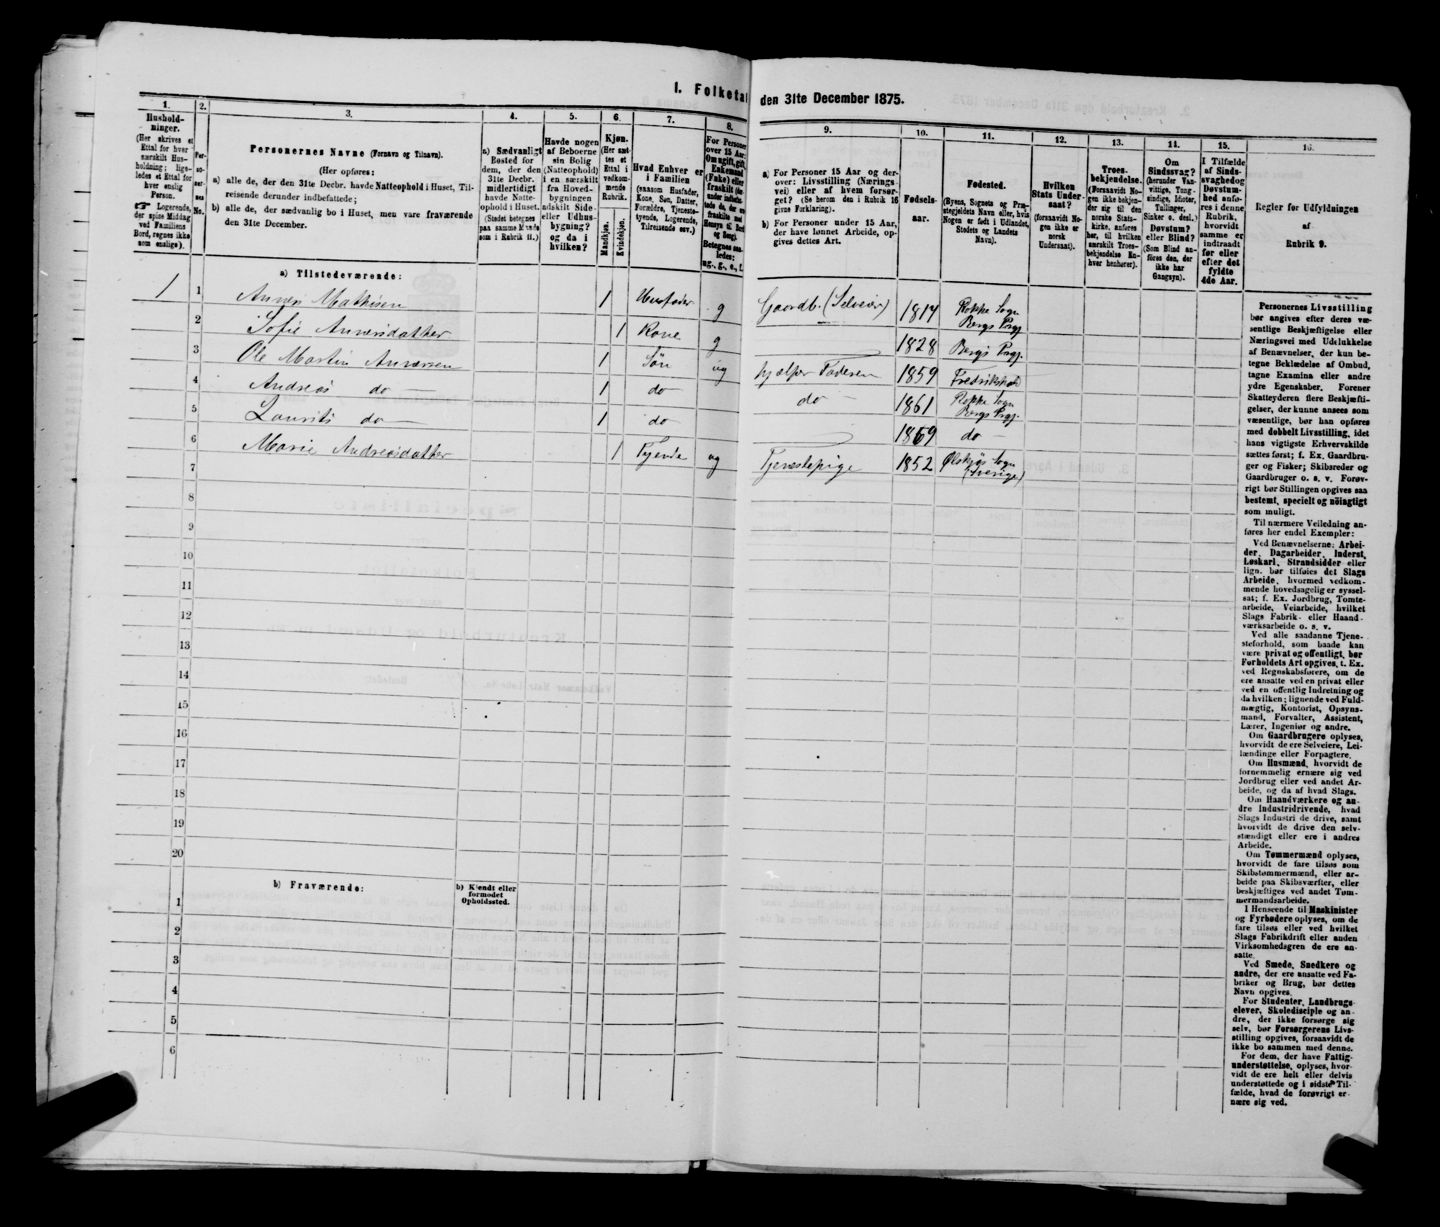 I. Folketal den 31te December 1875.
1.
Hushold-
ninger.
(Her skrives et
Ettal for hver
særskilt Hus-
holdning; lige-
ledes et Ettal for
hver enslig
Person.
Logerende,
der spise Middag
ved Familiens
Bord, regnes ikke
som enslige).
2.
Per-
so-
ner-
nes
No.
3.
Personernes Navne (Fornavn og Tilnavn).
(Her opføres:
a) alle de, der den 31te Decbr. havde Natteophold i Huset, Til-
reisende derunder indbefattede;
b) alle de, der sædvanlig bo i Huset, men vare fraværende
den 31te December.
4.
a) Sædvanligt
Bosted for
dem, der den
31te Decbr.
midlertidigt
havde Natte-
ophold i Huset.
(Stedet betegnes
paa samme Maade
som i Rubrik 11.)
5.
Havde nogen
af Beboerne
sin Bolig
(Natteophold)
i en særskilt
fra Hoved-
bygningen
adskilt Side-
eller Udhus-
bygning?
og da i
hvilken?
6.
Kjøn.
(Her sæt-
tes et
Ettal i
vedkom-
mende
Rubrik.
Mandkjøn.
Kvindekjøn.
7.
Hvad Enhver er
i Familien
(saasom Husfader,
Kone, Søn, Datter,
Forældre, Tjeneste-
tyende, Logerende,
Tilreisende osv.)
8.
For Personer
over 15 Aar:
Om ugift, gift,
Enkemand
(Enke) eller
fraskilt
9.
a) For Personer 15 Aar og der-
over: Livsstilling (Nærings-
vei) eller af hvem forsør-
get? (Se herom den i Rubrik 16
givne Forklaring).
b) For Personer under 15 Aar,
der have lønnet Arbeide, op-
gives dettes Art.
10.
Fødsels-
aar.
11.
Fødested.
(Byens, Sognets og Præ-
stegjeldets Navn eller, hvis
Nogen er født i Udlandet,
Stedets og Landets
Navn).
12.
Hvilken
Stats Under-
saat?
(forsaavidt No-
gen ikke er
norsk
Undersaat).
13.
Troes-
bekjendelse.
(Forsaavidt No-
gen ikke bekjen-
der sig til den
norske Stats-
kirke, anføres
her, til hvilken
særskilt Troes-
bekjendelse En-
hver henhører).
14.
Om
Sindssvag?
(herunder Van-
vittige, Tung-
sindige, Idioter,
Tullinger,
Sinker o. desl.)
Døvstum?
eller Blind?
(Som Blind an-
føres den, der
ikke har
Gangsyn).
15.
I Tilfælde
af Sinds-
svaghed og
Døvstum-
hed anfø-
res i denne
Rubrik,
hvorvidt
samme er
indtraadt
før eller
efter det
fyldte
4de Aar.
16.
Regler for Udfyldningen
af
Rubrik 9.
a) Tilstedeværende:
1 1 Anders Mathisen 1 Husfader g Gaardb. (Selveier) 1814 Rokke Sogn Bergs Prgj.
2 Sofie Andersdatter 1 Kone g 1828 Bergs Prgj.
3 Ole Martin Andersen 1 Søn ug hjælper Faderen 1859 Fredrikshald
4 Andreas do 1 do do 1861 Rokke Sogn Bergs Prgj.
5 Laurits do 1 do 1869 do
6 Marie Andreasdatter 1 Tyende ug Tjenestepige 1852 Sogn (Sverige)
7
8
9
10
11
12
13
14
15
16
17
18
19
20
b) Fraværende:
b) Kjendt eller
formodet
Opholdssted.
1
2
3
4
5
6
Personernes Livsstilling
bør angives efter deres væ-
sentlige Beskjæftigelse eller
Næringsvei med Udelukkelse
af Benævnelser, der kun be-
tegne Beklædelse af Ombud,
tagne Examina eller andre
ydre Egenskaber. Forener
Skatteyderen flere Beskjæfti-
gelser, der kunne ansees som
væsentlige, bør han opføres
med dobbelt Livsstilling, idet
hans vigtigste Erhvervskilde
sættes først; f. Ex. Gaardbru-
ger og Fisker; Skibsreder og
Gaardbruger o. s. v. Forøv-
rigt bør Stillingen opgives saa
bestemt, specielt og nøiagtigt
som muligt.
Til nærmere Veiledning an-
føres her endel Exempler:
Ved Benævnelserne: Arbei-
der, Dagarbeider, Inderst,
Løskarl, Strandsidder eller
lign. bør tilføies det Slags
Arbeide, hvormed vedkom-
mende hovedsagelig er syssel-
sat; f. Ex. Jordbrug, Tomte-
arbeide, Veiarbeide, hvilket
Slags Fabrik- eller Haand-
værksarbeide o. s. v.
Ved alle saadanne Tjene-
steforhold, som baade kan
være privat og offentligt, bør
Forholdets Art opgives, t. Ex.
ved Regnskabsførere, om de
ere ansatte ved en privat eller
ved en offentlig Indretning og
da hvilken; lignende ved Fuld-
mægtig, Kontorist, Opsyns-
mand, Forvalter, Assistent,
Lærer, Ingeniør og andre.
Om Gaardbrugere oplyses,
hvorvidt de ere Selveiere, Lei-
lændinge eller Forpagtere.
Om Husmænd, hvorvidt de
fornemmelig ernære sig ved
Jordbrug eller ved andet Ar-
beide, og da af hvad Slags.
Om Haandværkere og an-
dre Industridrivende, hvad
Slags Industri de drive, samt
hvorvidt de drive den selv-
stændigt eller ere i andres
Arbeide.
Om Tømmermænd oplyses,
hvorvidt de fare tilsøs som
Skibstømmermænd, eller ar-
beide paa Skibsværfter, eller
beskjæftiges ved andet Tøm-
mermandsarbeide.
I Henseende til Maskinister
og Fyrbødere oplyses, om de
fare tilsøs eller ved hvilket
Slags Fabrikdrift eller anden
Virksomhedsgren de ere an-
satte.
Ved Smede, Snedkere og
andre, der ere ansatte ved Fa-
briker og Brug, bør dettes
Navn opgives.
For Studenter, Landbrugs-
elever, Skoledisciple og an-
dre, der ikke forsørge sig
selv, bør Forsørgerens Livs-
stilling opgives, forsaavidt de
ikke bo sammen med denne.
For dem, der have Fattig-
understøttelse, oplyses, hvor-
vidt de ere helt eller delvis
understøttede og i sidste Til-
fælde, hvad de forøvrigt er-
nære sig ved.